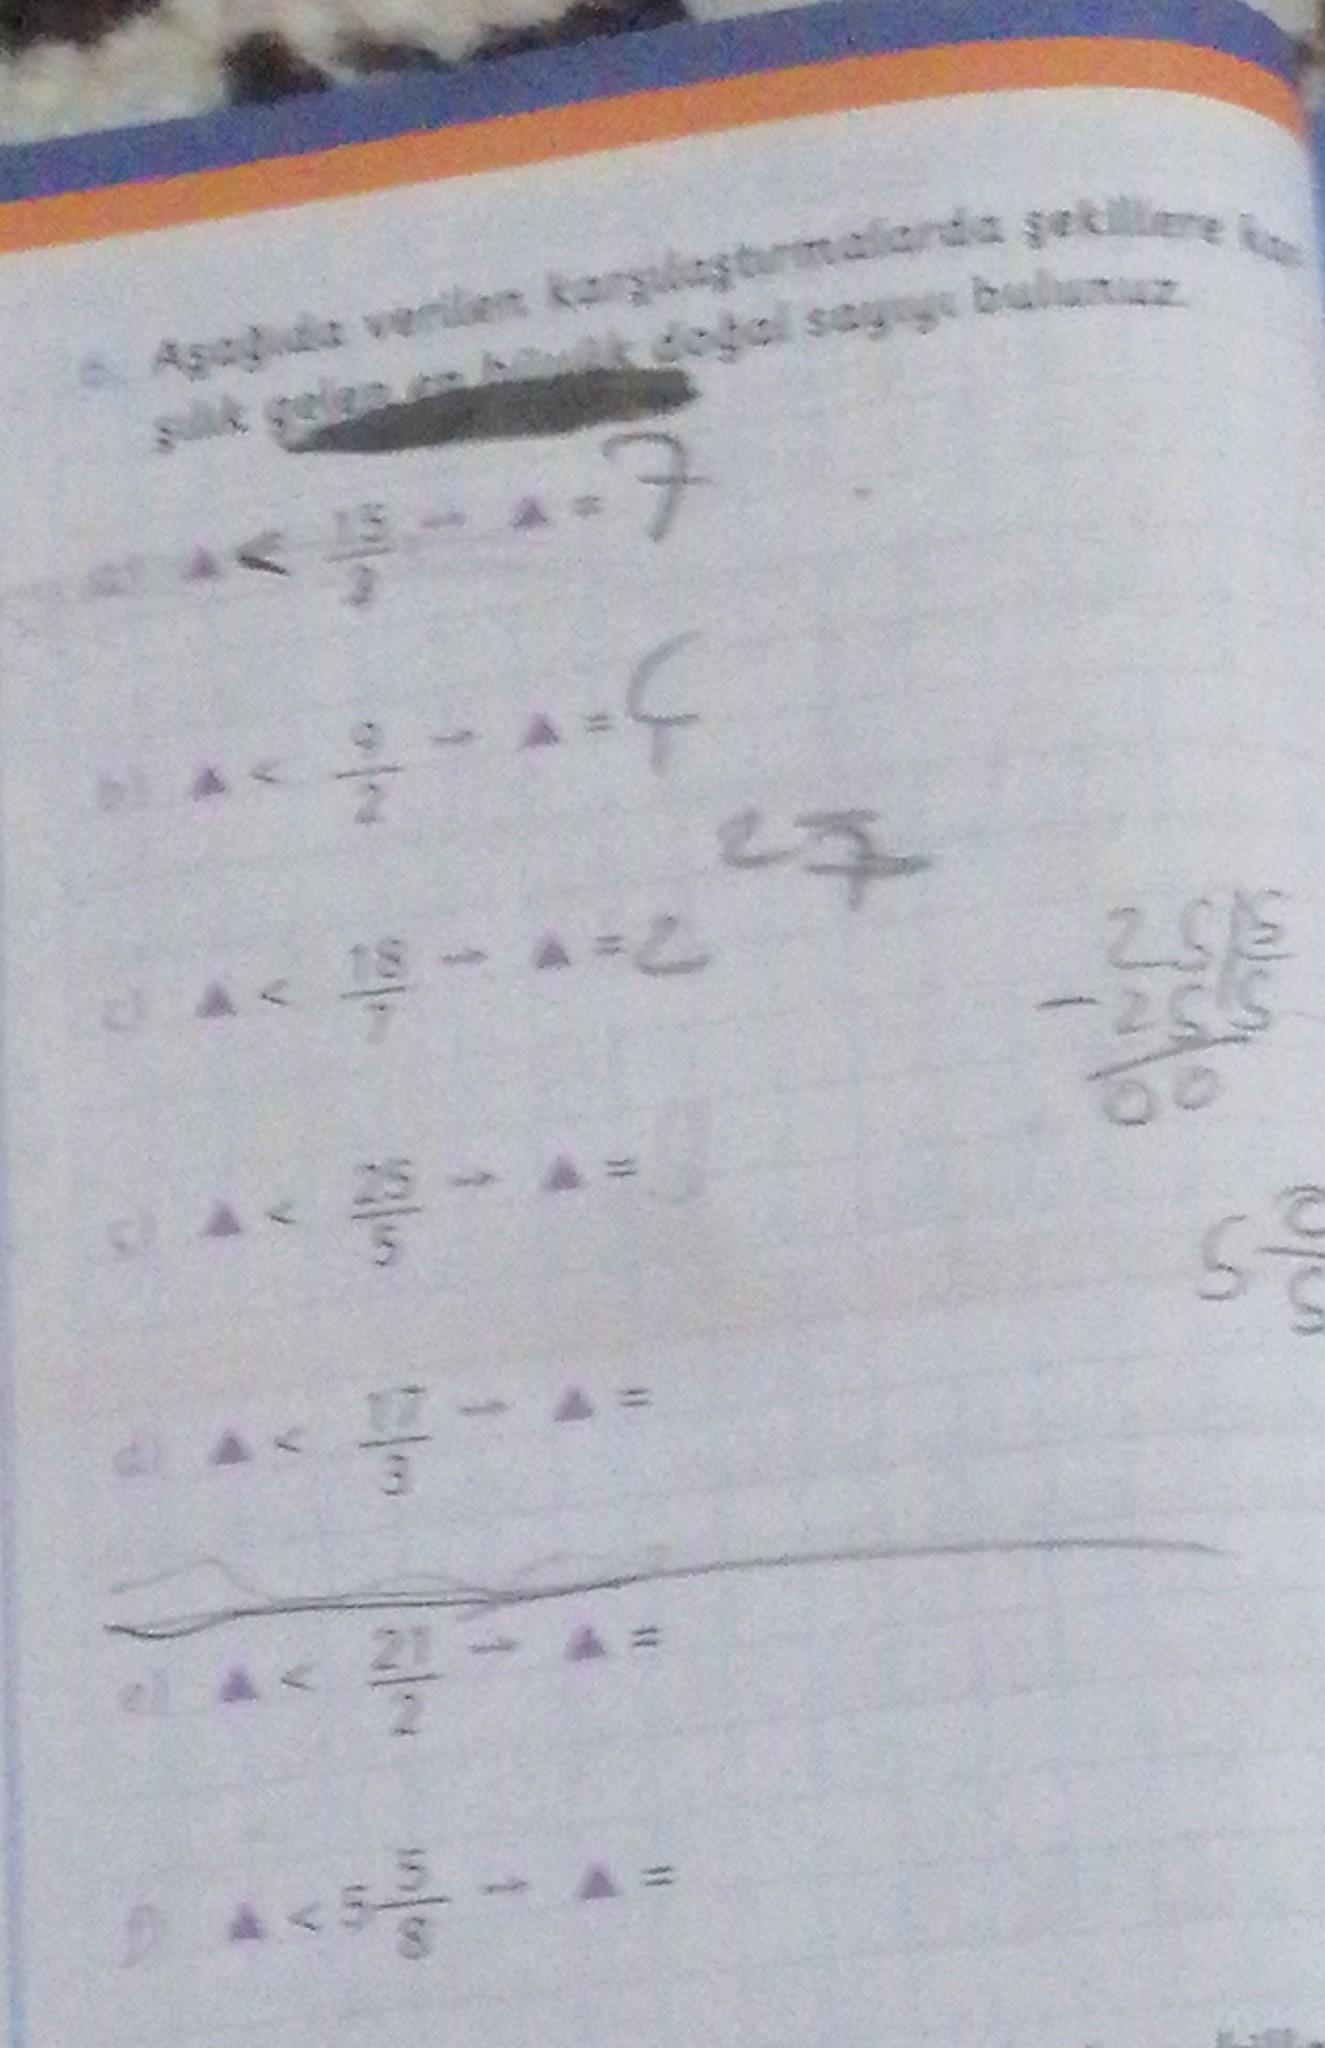 6. Aşağıda verilen karşılaştırmalarda şekillere kar
şılık gelen en büyük doğal sayıyı bulunuz.
a) ▲ < 15/2 → ▲ = 7
b) ▲ < 9/2 → ▲ = 4
27
c) ▲ < 18/7 → ▲ = 2
25 5
- 25 5
00
ç) ▲ < 25/5 → ▲ =
5 0/5
d) ▲ < 17/3 → ▲ =
e) ▲ < 21/2 → ▲ =
f) ▲ < 5 5/8 → ▲ =